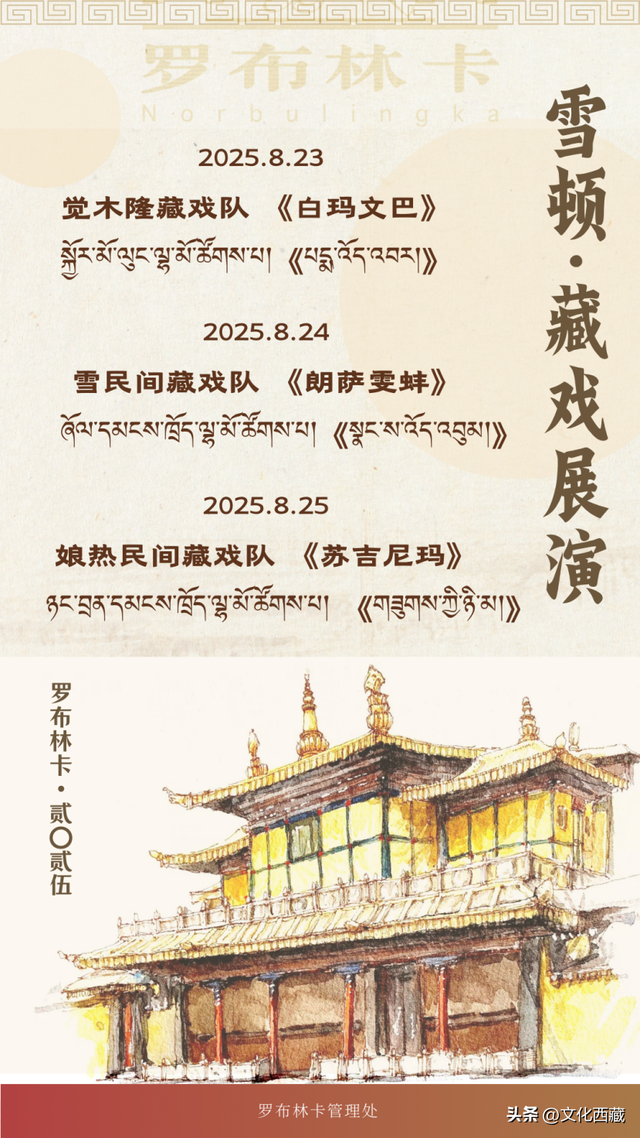 罗布林卡
Norbulingka
雪顿·藏戏展演
2025.8.23
觉木隆藏戏队 《白玛文巴》
སྐྱོར་མོ་ལུང་ལྷ་མོ་ཚོགས་པ། 《པདྨ་འོད་འབར།》
2025.8.24
雪民间藏戏队 《朗萨雯蚌》
ཞོལ་དམངས་ཁྲོད་ལྷ་མོ་ཚོགས་པ། 《སྣང་ས་འོད་འབུམ།》
2025.8.25
娘热民间藏戏队 《苏吉尼玛》
ཉང་བྲན་དམངས་ཁྲོད་ལྷ་མོ་ཚོགས་པ། 《གཟུགས་ཀྱི་ཉི་མ།》
罗布林卡·贰〇贰伍
罗布林卡管理处
头条 @文化西藏